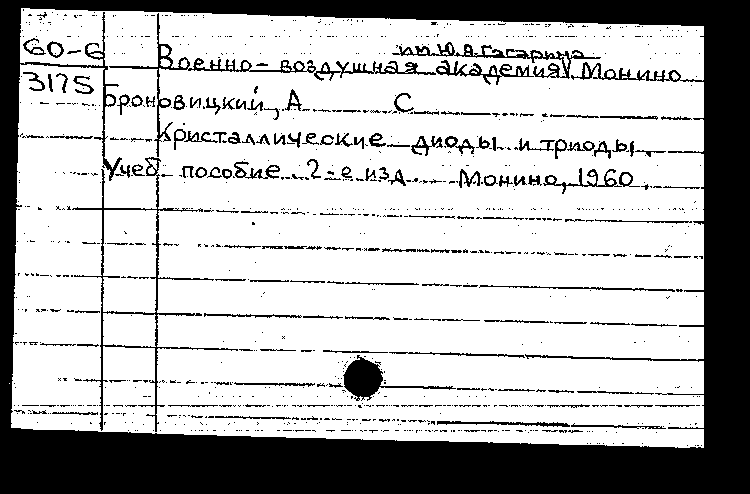 60-6
3175
им Ю.А.Гагарина
Военно-воздушная академия, Монино
Броновицкий, А С
Кристаллические диоды и триоды.
Учеб. пособие. 2-е изд. Монино, 1960.